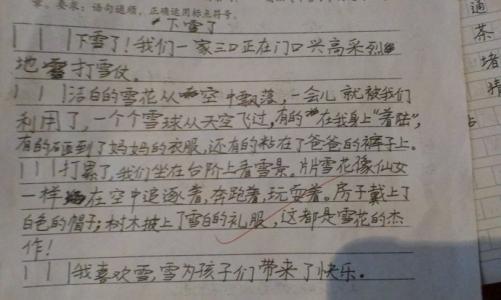 要求：语句通顺，正确运用标点符号。
下雪了
下雪了！我们一家三口正在门口兴高采烈
地打雪仗。
洁白的雪花从空中飘落，一会儿就被我们
利用了，一个个雪球从天空飞过，有的在我身上“着陆”，
有的砸到了妈妈的衣服，还有的粘在了爸爸的裤子上。
打累了，我们坐在台阶上看雪景。片片雪花像仙女
一样在空中追逐着，奔跑着，玩耍着。房子戴上了
白色的帽子；树木披上了雪白的礼服，这都是雪花的杰
作！
我喜欢雪，雪为孩子们带来了快乐。
通
茶
堵
情